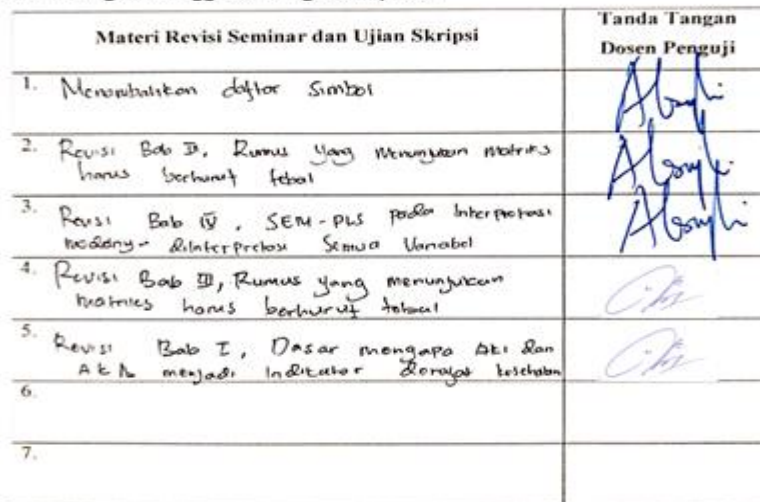 Materi Revisi Seminar dan Ujian Skripsi
Tanda Tangan
Dosen Penguji
1. Menambahkan daftar Simbol
2. Revisi Bab II, Rumus yang menunjukan matriks
harus berhuruf tebal
3. Revisi Bab IV, SEM-PLS pada Interpretasi
diinterpretasi Semua Variabel
4. Revisi Bab III, Rumus yang menunjukan
matriks harus berhuruf tebal
5. Revisi Bab I, Dasar mengapa AKI dan
AKN menjadi Indikator derajat kesehatan
6.
7.